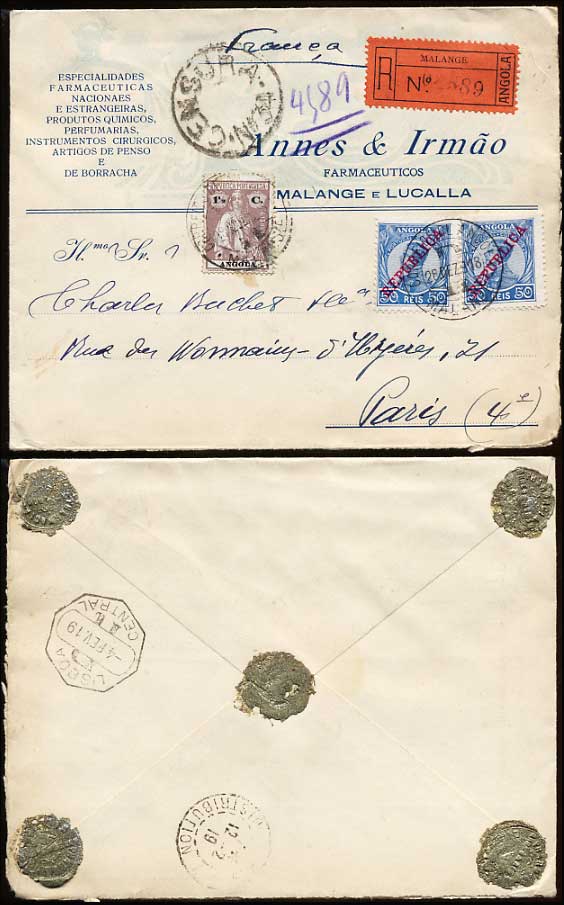 França
CENSURA
MALANGE
R
Nº 4589
ANGOLA
4589
ESPECIALIDADES
FARMACEUTICAS
NACIONAES
E ESTRANGEIRAS,
PRODUTOS QUIMICOS,
PERFUMARIAS,
INSTRUMENTOS CIRURGICOS,
ARTIGOS DE PENSO
E
DE BORRACHA
Annes & Irmão
FARMACEUTICOS
MALANGE E LUCALLA
1½ C.
ANGOLA
ANGOLA
REPUBLICA
REPUBLICA
50 REIS 50
REIS 50
Il.mo Sr.
Charles Buchet
Rue des Nonnains-d'Hyères, 21
Paris (4e)
LISBOA
-4 FEV. 19
CENTRAL
DISTRIBUTION
12
19